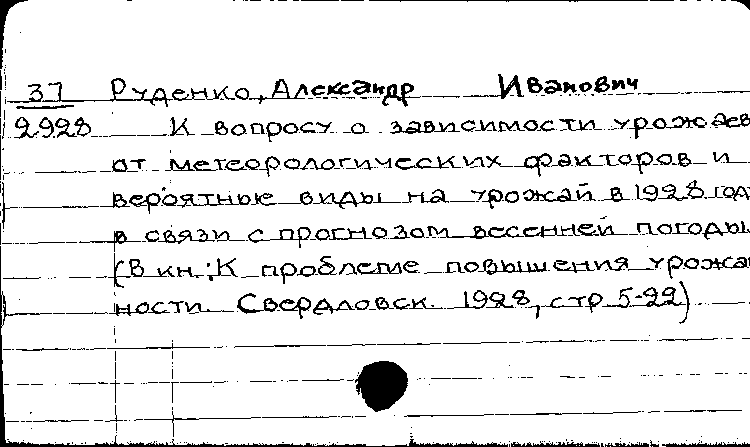 37 Руденко, Александр Иванович
2928 К вопросу о зависимости урожаев
от метеорологических факторов и
вероятные виды на урожай в 1928 год
в связи с прогнозом весенней погоды.
(В кн.: К проблеме повышения урожай
ности. Свердловск. 1928, стр 5-22)